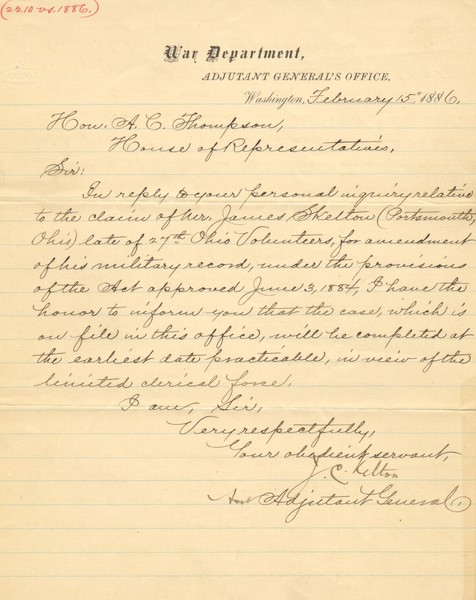 (2210 vs. 1886.)
War Department,
ADJUTANT GENERAL'S OFFICE,
Washington, February 15th 1886.
Hon. A. C. Thompson,
House of Representatives.
Sir:
In reply to your personal inquiry relative
to the claim of Mr. James Skelton (Portsmouth,
Ohio) late of 27th Ohio Volunteers, for amendment
of his military record, under the provisions
of the Act approved June 3, 1884, I have the
honor to inform you that the case, which is
on file in this office, will be completed at
the earliest date practicable, in view of the
limited clerical force.
I am, Sir,
Very respectfully,
Your obedient servant,
J. C. Kelton
Asst Adjutant General.